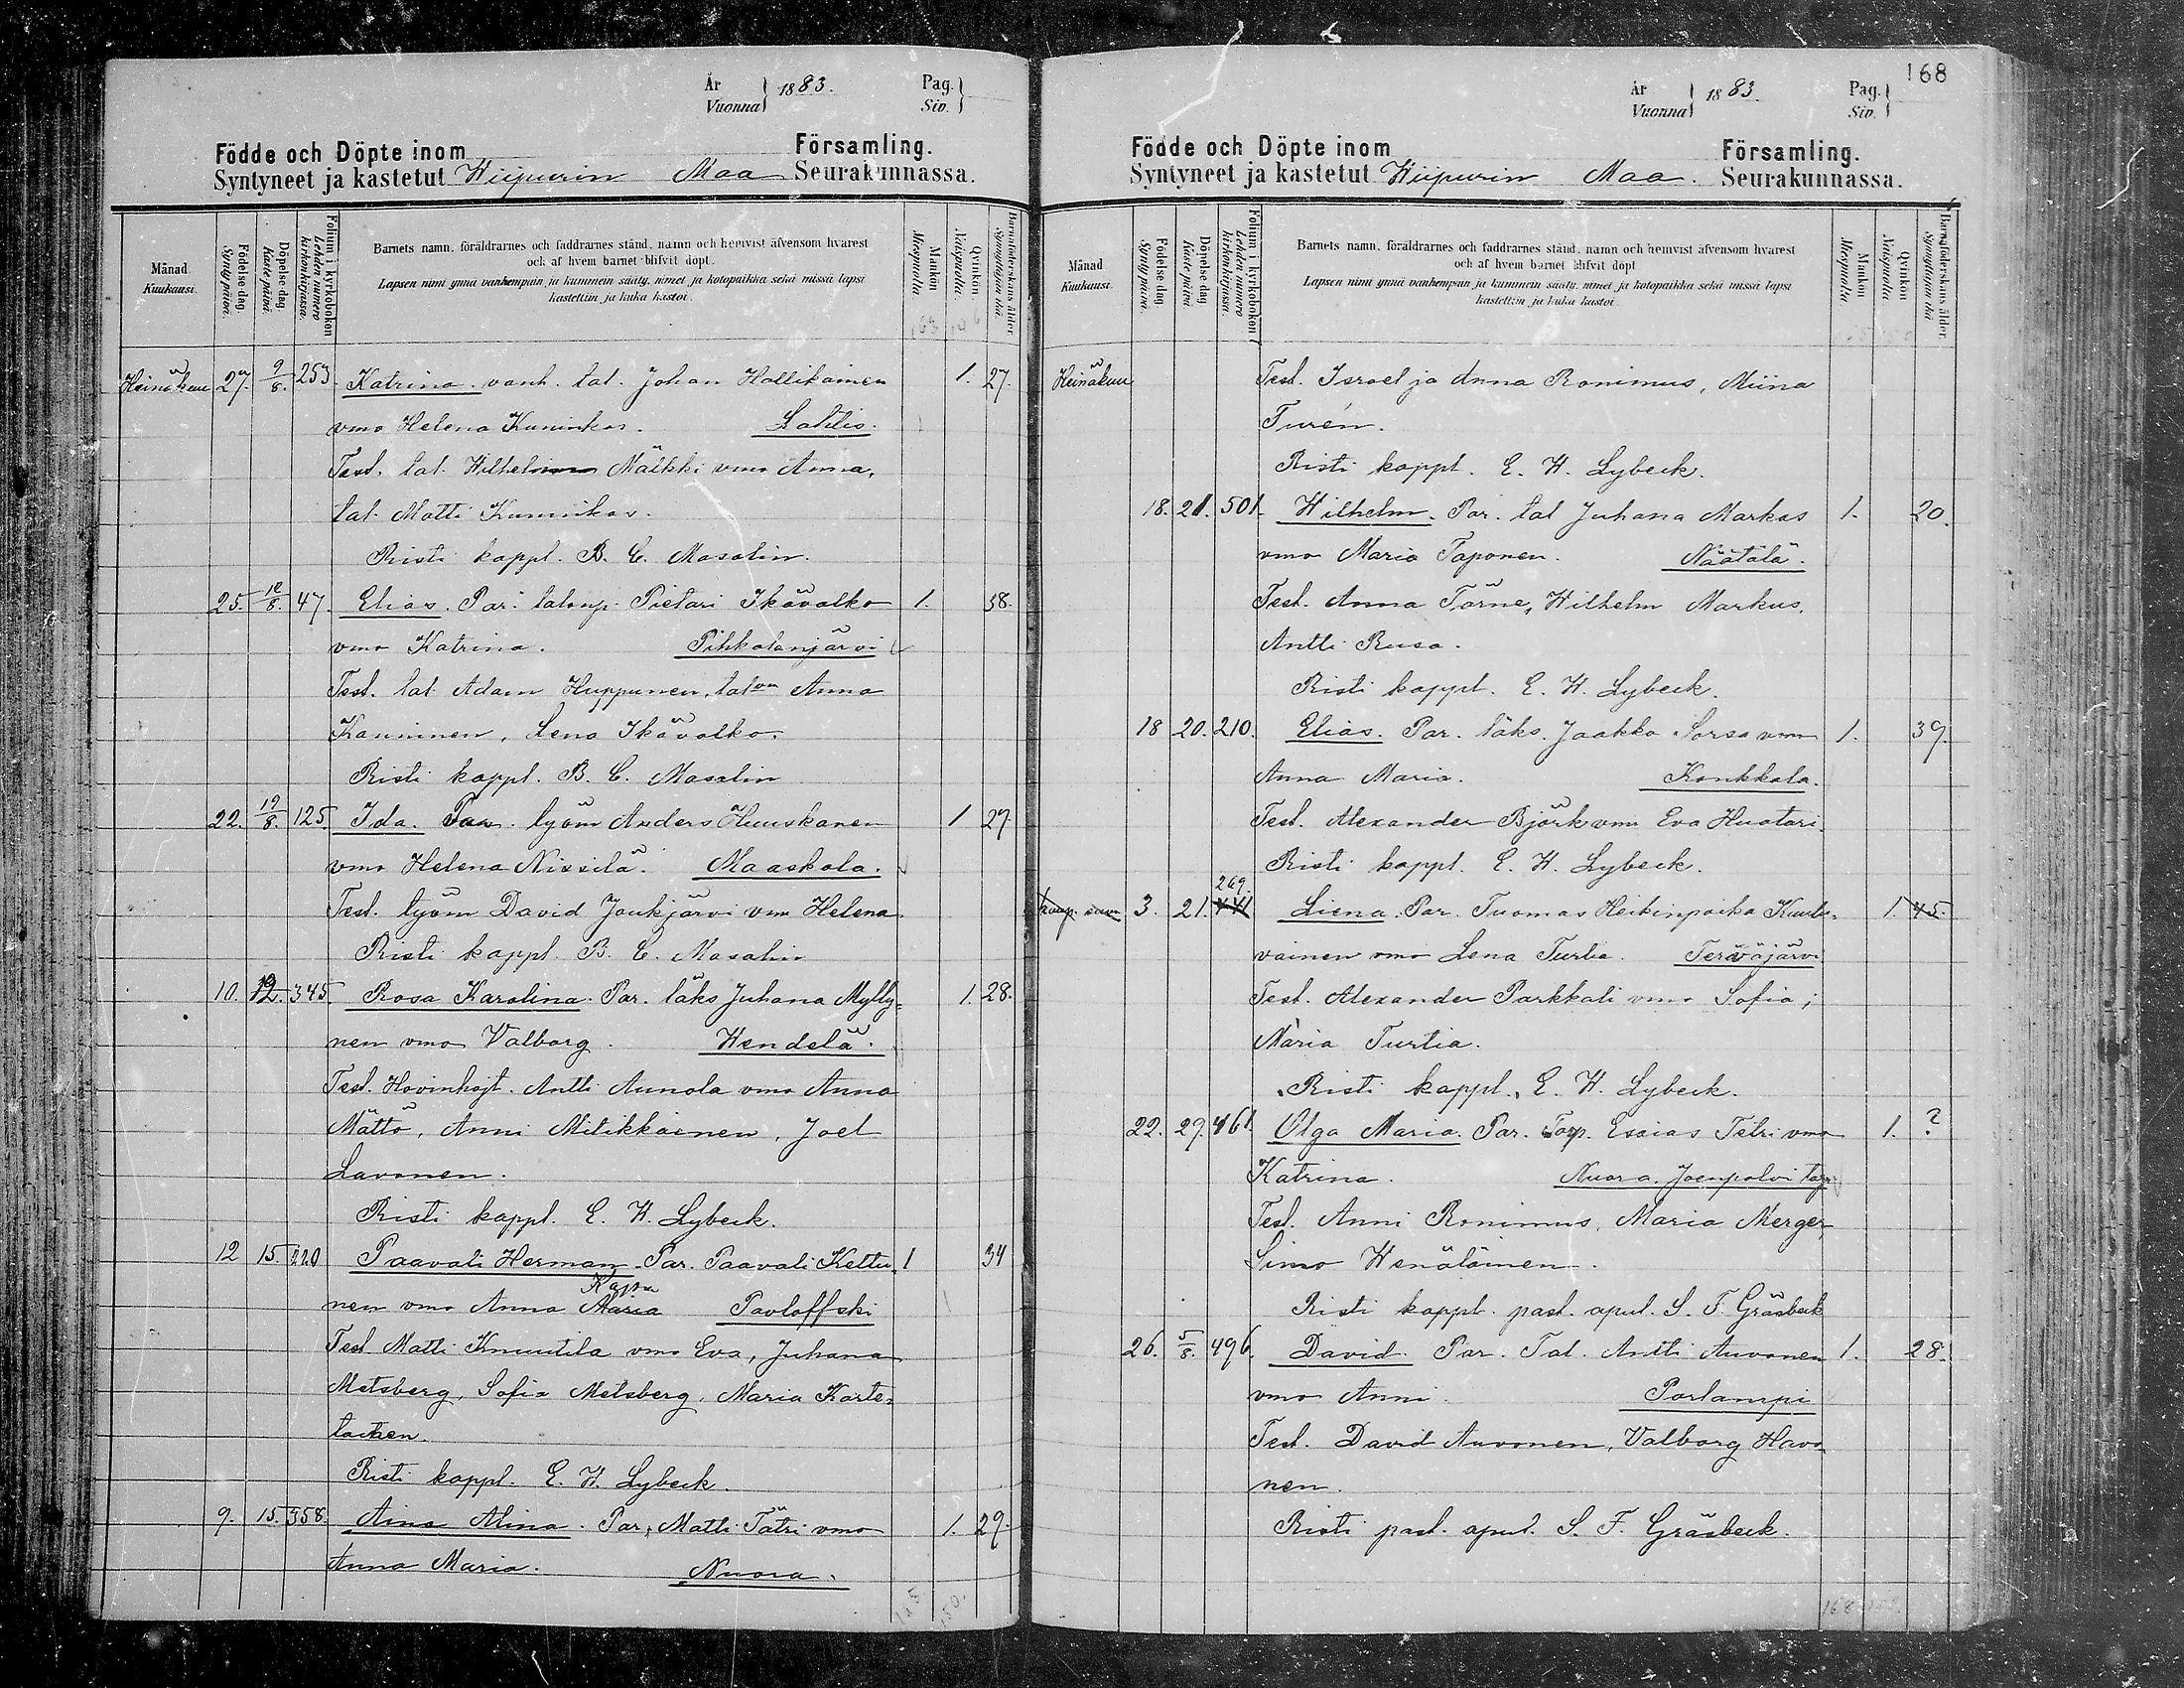 År
Vuonna } 1883.
Pag.
Siv. }
Födde och Döpte inom Församling.
Syntyneet ja kastetut Wiipurin Maa Seurakunnassa.
Månad
Kuukausi.
Födelse-dag.
Synty päivä.
Döpelse-dag.
Kaste päivä.
Folium i kyrkoboken
Lehden numero
kirkonkirjassa.
Barnets namn, föräldrarnes och faddrarnes stånd, namn och hemvist äfvensom hvarest
och af hvem barnet blifvit döpt.
Lapsen nimi ynnä vanhempain ja kummein sääty, nimet ja kotopaikka sekä missä lapsi
kastettiin ja kuka kastoi.
Mankön
Miespuolia
Qvinkön
Naispuolia.
Barnaföderskans ålder.
Synnyttäjän ikä.
Heinäkuu 27. 9/8. 253. Katrina. vanh. tal. Johan Hallikainen 1. 27.
vmo Helena Kuninkas. Lahtis.
Test. tal. Wilhelm Mälkki vmo Anna,
tal. Matti Kuninkas.
Risti kappl. B. C. Masalin.
25. 12/8. 47. Elias. Par. talonp. Pietari Ikävalko 1. 38.
vmo Katrina. Pihkalanjärvi
Test. tal. Adam Huppunen, tal:on Anna
Kauninen, Lena Ikävalko.
Risti kappl. B. C. Masalin
22. 19/8. 125. Ida. Par. työm Anders Huuskanen 1 27.
vmo Helena Nissilä. Maaskola.
Test. työm David Joukjärvi vmo Helena.
Risti kappl. B. C. Masalin
10. 12. 345. Rosa Karolina. Par. läks Juhana Mylly- 1. 28.
nen vmo Valborg. Wendelä.
Test. Hovinhojt. Antti Aunola vmo Anna
Mättö, Anni Mitikkainen, Joel
Lavonen.
Risti kappl. E. W. Lybeck.
12 15. 220 Paavali Herman. Par. Paavali Kettu- 1 34
Kajsa
nen vmo Anna Maria Pavloffski
Test Matti Knuutila vmo Eva, Juhana
Metsberg, Sofia Metsberg, Maria Karte-
Risti kappl. E. W. Lybeck.
9. 15. 358. Aina Alina. Par. Matti Tätri vmo 1. 29.
Anna Maria. Nuora.
168
År
Vuonna } 1883.
Pag.
Siv. }
Födde och Döpte inom Församling.
Syntyneet ja kastetut Wiipurin Maa. Seurakunnassa.
Månad
Kuukausi.
Födelse-dag
Synty päivä.
Döpelse-dag
Kaste päivä.
Folium i kyrkoboken
Lehden numero
kirkonkirjassa.
Barnets namn, föräldrarnes och faddrarnes stånd, namn och hemvist äfvensom hvarest
och af hvem barnet blifvit döpt
Lapsen nimi ynnä vanhempain ja kummein sääty, nimet ja kotopaikka sekä missä lapsi
kastettiin ja kuka kastoi
Mankön
Miespuolia
Qvinkön
Naispuolia
Barnaföderskans ålder.
Synnyttäjän ikä
Heinäkuu Test. Israel ja Anna Ronimus, Miina
Turén.
Risti kappl. E. W. Lybeck.
18. 21. 501. Wilhelm. Par. tal Juhana Markus 1. 20.
vmo Maria Taponen. Näätälä.
Test. Anna Törne, Wilhelm Markus,
Antti Rusa.
Risti kappl. E. W. Lybeck.
18 20. 210. Elias. Par. läks. Jaakko Sorsa vmo 1. 39.
Anna Maria. Konkkala.
Test. Alexander Björk vmo Eva Huotari.
Risti kappl. E. W. Lybeck.
269.
3. 21. Liena. Par. Tuomas Heikinpoika Kuule- 1. 45.
vainen vmo Lena Turtia. Terväjärvi
Test. Alexander Parkkali vmo Sofia,
Maria Turtia.
Risti kappl. E. W. Lybeck.
22. 29. 461. Olga Maria. Par. Torp. Esaias Tätri vmo 1. ?
Katrina. Nuora. Joenpolvi torp.
Test. Anni Ronimus, Maria Merger,
Simo Wenäläinen.
Risti kappl. past. apul. S. F. Gräsbeck
26. 5/8. 496. David. Par. Tal. Antti Auvonen 1. 28.
vmo Anni. Parlampi
Test. David Auvonen, Valborg Havo-
nen.
Risti past. apul. S. F. Gräsbeck.